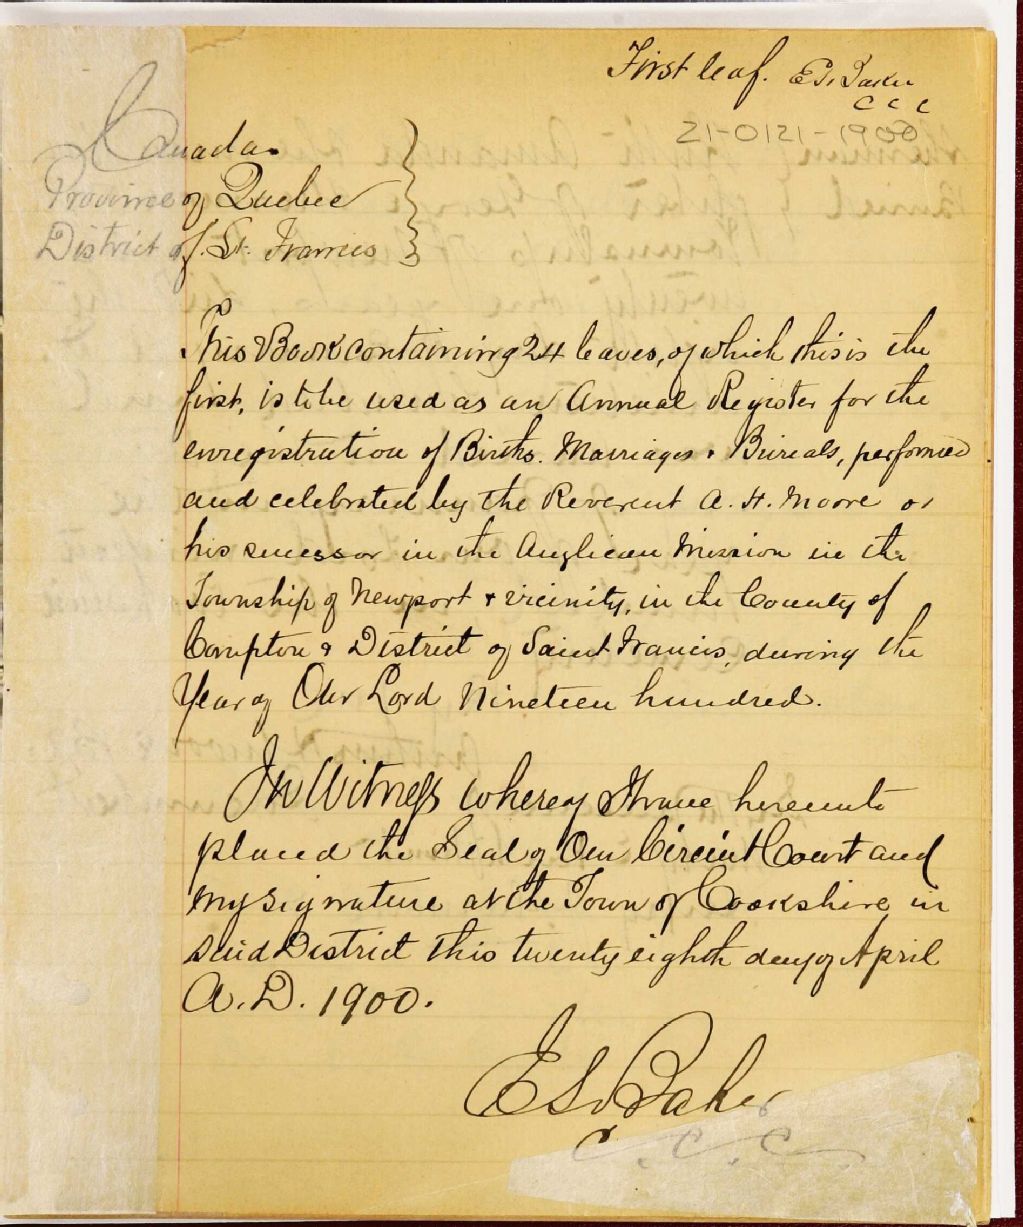 First leaf. E. S. Baker
C C C
21-0121-1900
Canada.
Province of Quebec
District of St. Francis
This Book containing 24 leaves, of which this is the
first, is to be used as an Annual Register for the
enregistration of Births. Marriages & Burials, performed
and celebrated by the Reverent A. H. Moore or
his sucessor in the Anglican Mission in the
Township of Newport & vicinity, in the County of
Compton & District of Saint Francis, during the
Year of Our Lord Nineteen hundred.
In Witness whereof I have hereunto
placed the Seal of Our Circuit Court and
my signature at the Town of Cookshire in
said District this twenty eighth day of April
A.D. 1900.
E S Baker
C. C. C